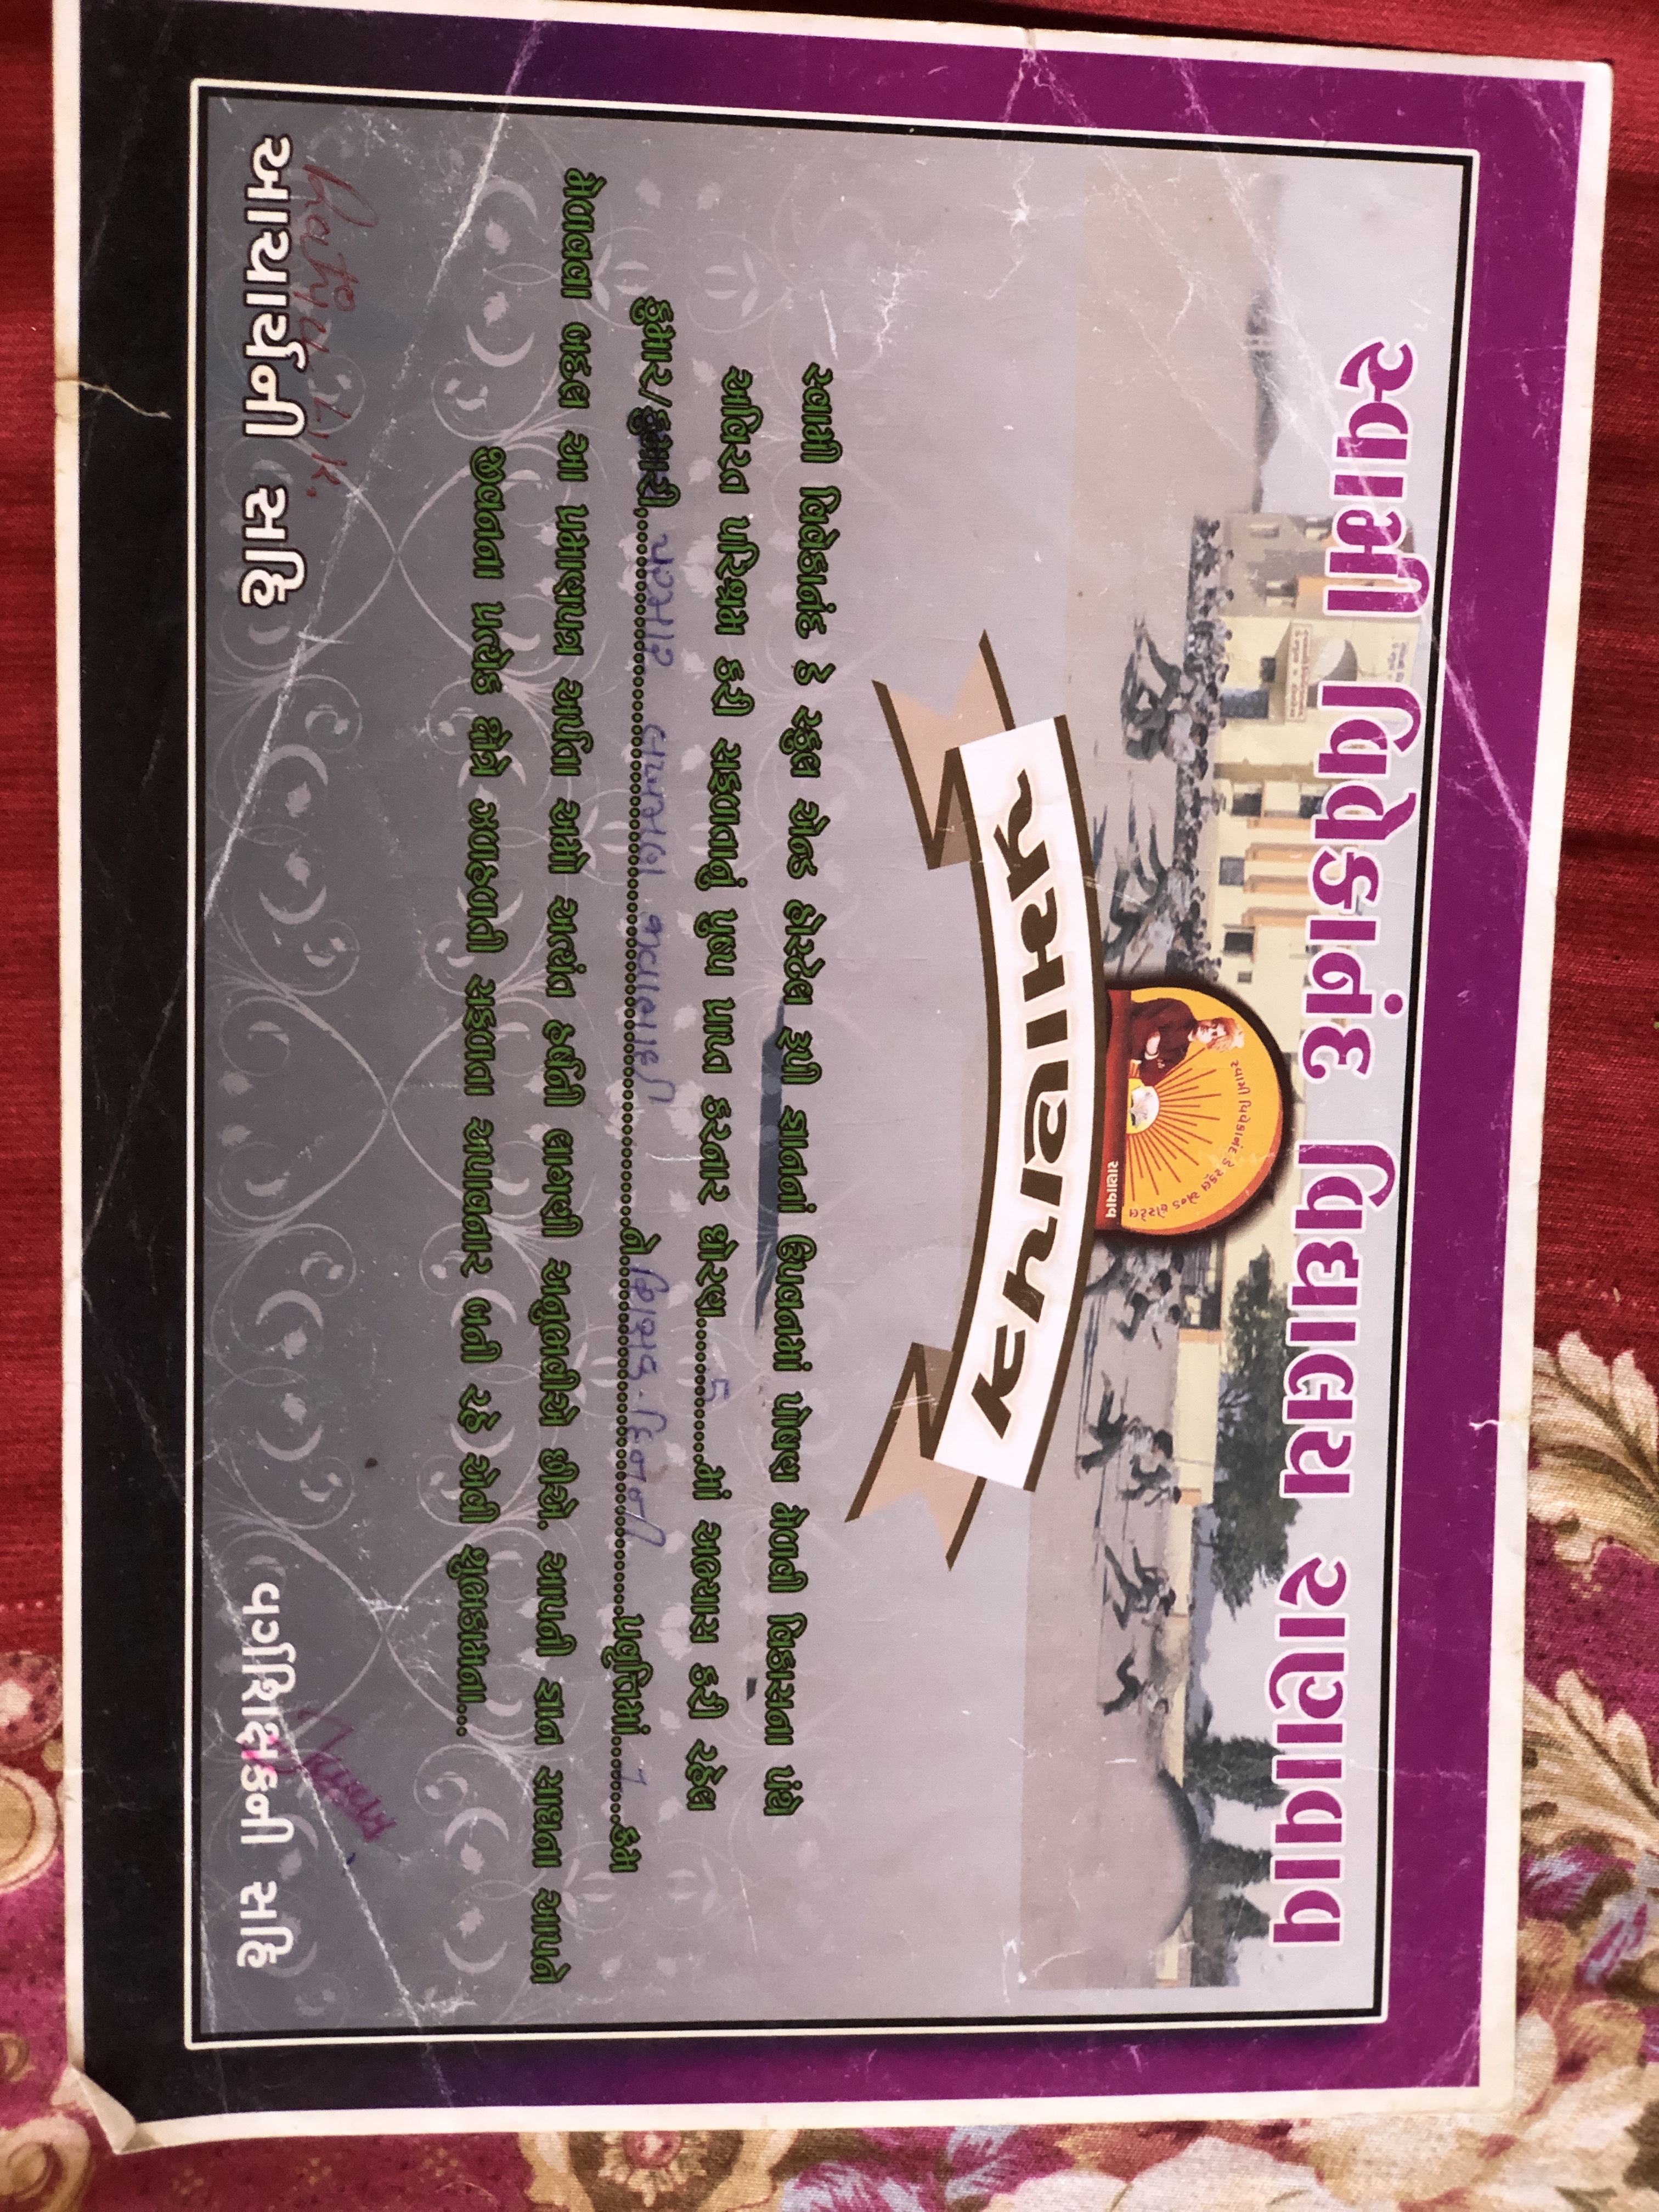 સ્વામી વિવેકાનંદ વિદ્યાલય રાણાવાવ
સ્વામી વિવેકાનંદ ડે સ્કૂલ એન્ડ હોસ્ટેલ
રાણાવાવ
પ્રમાણપત્ર
સ્વામી વિવેકાનંદ ડે સ્કુલ એન્ડ હોસ્ટેલ રૂપી જ્ઞાનનાં ઉપવનમાં પોષણ મેળવી વિકાસના પંથે
અવિરત પરિશ્રમ કરી સફળતાનું પુષ્પ પ્રાપ્ત કરનાર ધોરણ.....5......માં અભ્યાસ કરી રહેલ
કુમાર/કુમારી, પરમાર લખમણ જીવાભાઈ ને શિક્ષક-દિનની પ્રવૃત્તિમાં 1 ક્રમ
મેળવવા બદલ આ પ્રમાણપત્ર અર્પતા અમો અત્યંત હર્ષની લાગણી અનુભવીએ છીએ. આપની જ્ઞાન સાધના આપને
જીવનના પ્રત્યેક ક્ષેત્રે ઝળહળતી સફળતા અપાવનાર બની રહે એવી શુભકામના...
L.K.
આચાર્યની સહિ
વર્ગશિક્ષકની સહિ